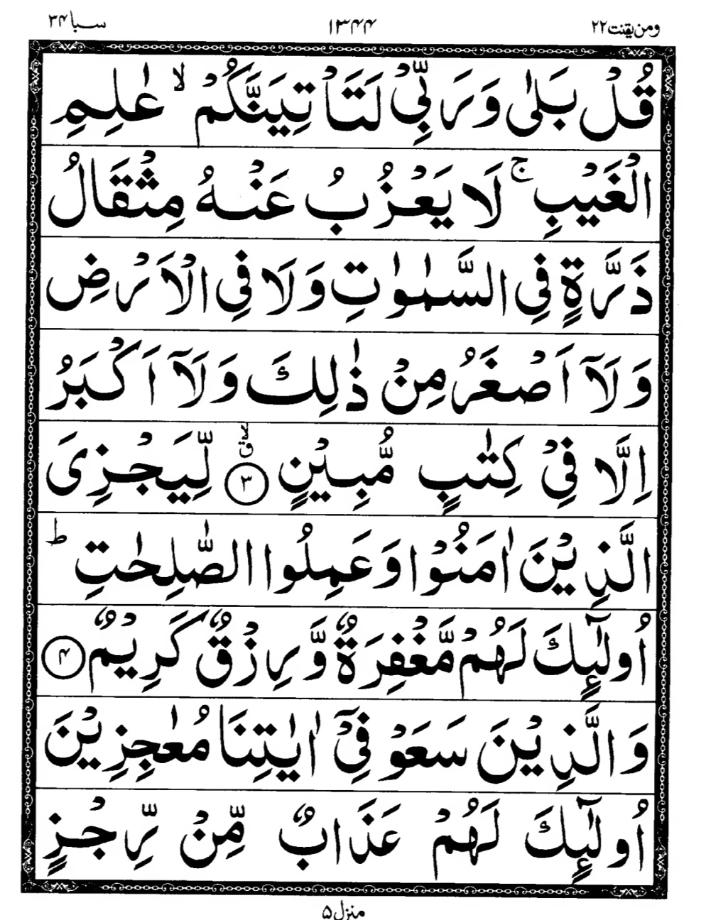 ومن یقنت ۲۲ ۱۳۴۴ سبا ۳۴
قُلْ بَلٰی وَرَبِّیْ لَتَاْتِیَنَّکُمْ ۙ عٰلِمِ
الْغَیْبِ ۚ لَا یَعْزُبُ عَنْهُ مِثْقَالُ
ذَرَّةٍ فِی السَّمٰوٰتِ وَلَا فِی الْاَرْضِ
وَلَاۤ اَصْغَرُ مِنْ ذٰلِكَ وَلَاۤ اَکْبَرُ
اِلَّا فِیْ کِتٰبٍ مُّبِیْنٍ ۳ لِّیَجْزِیَ
الَّذِیْنَ اٰمَنُوْا وَعَمِلُوا الصّٰلِحٰتِ ؕ
اُولٰٓئِكَ لَهُمْ مَّغْفِرَةٌ وَّرِزْقٌ کَرِیْمٌ ۴
وَالَّذِیْنَ سَعَوْ فِیْۤ اٰیٰتِنَا مُعٰجِزِیْنَ
اُولٰٓئِكَ لَهُمْ عَذَابٌ مِّنْ رِّجْزٍ
منزل ۵